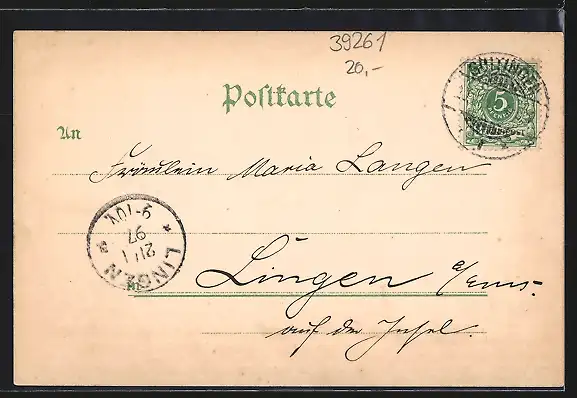 39261
20,-
Postkarte
An
Fräulein Maria Langen
GÖTTINGEN
5
LINGEN
21/1
97
9-10V.
in Lingen a/ems.
auf der Insel.